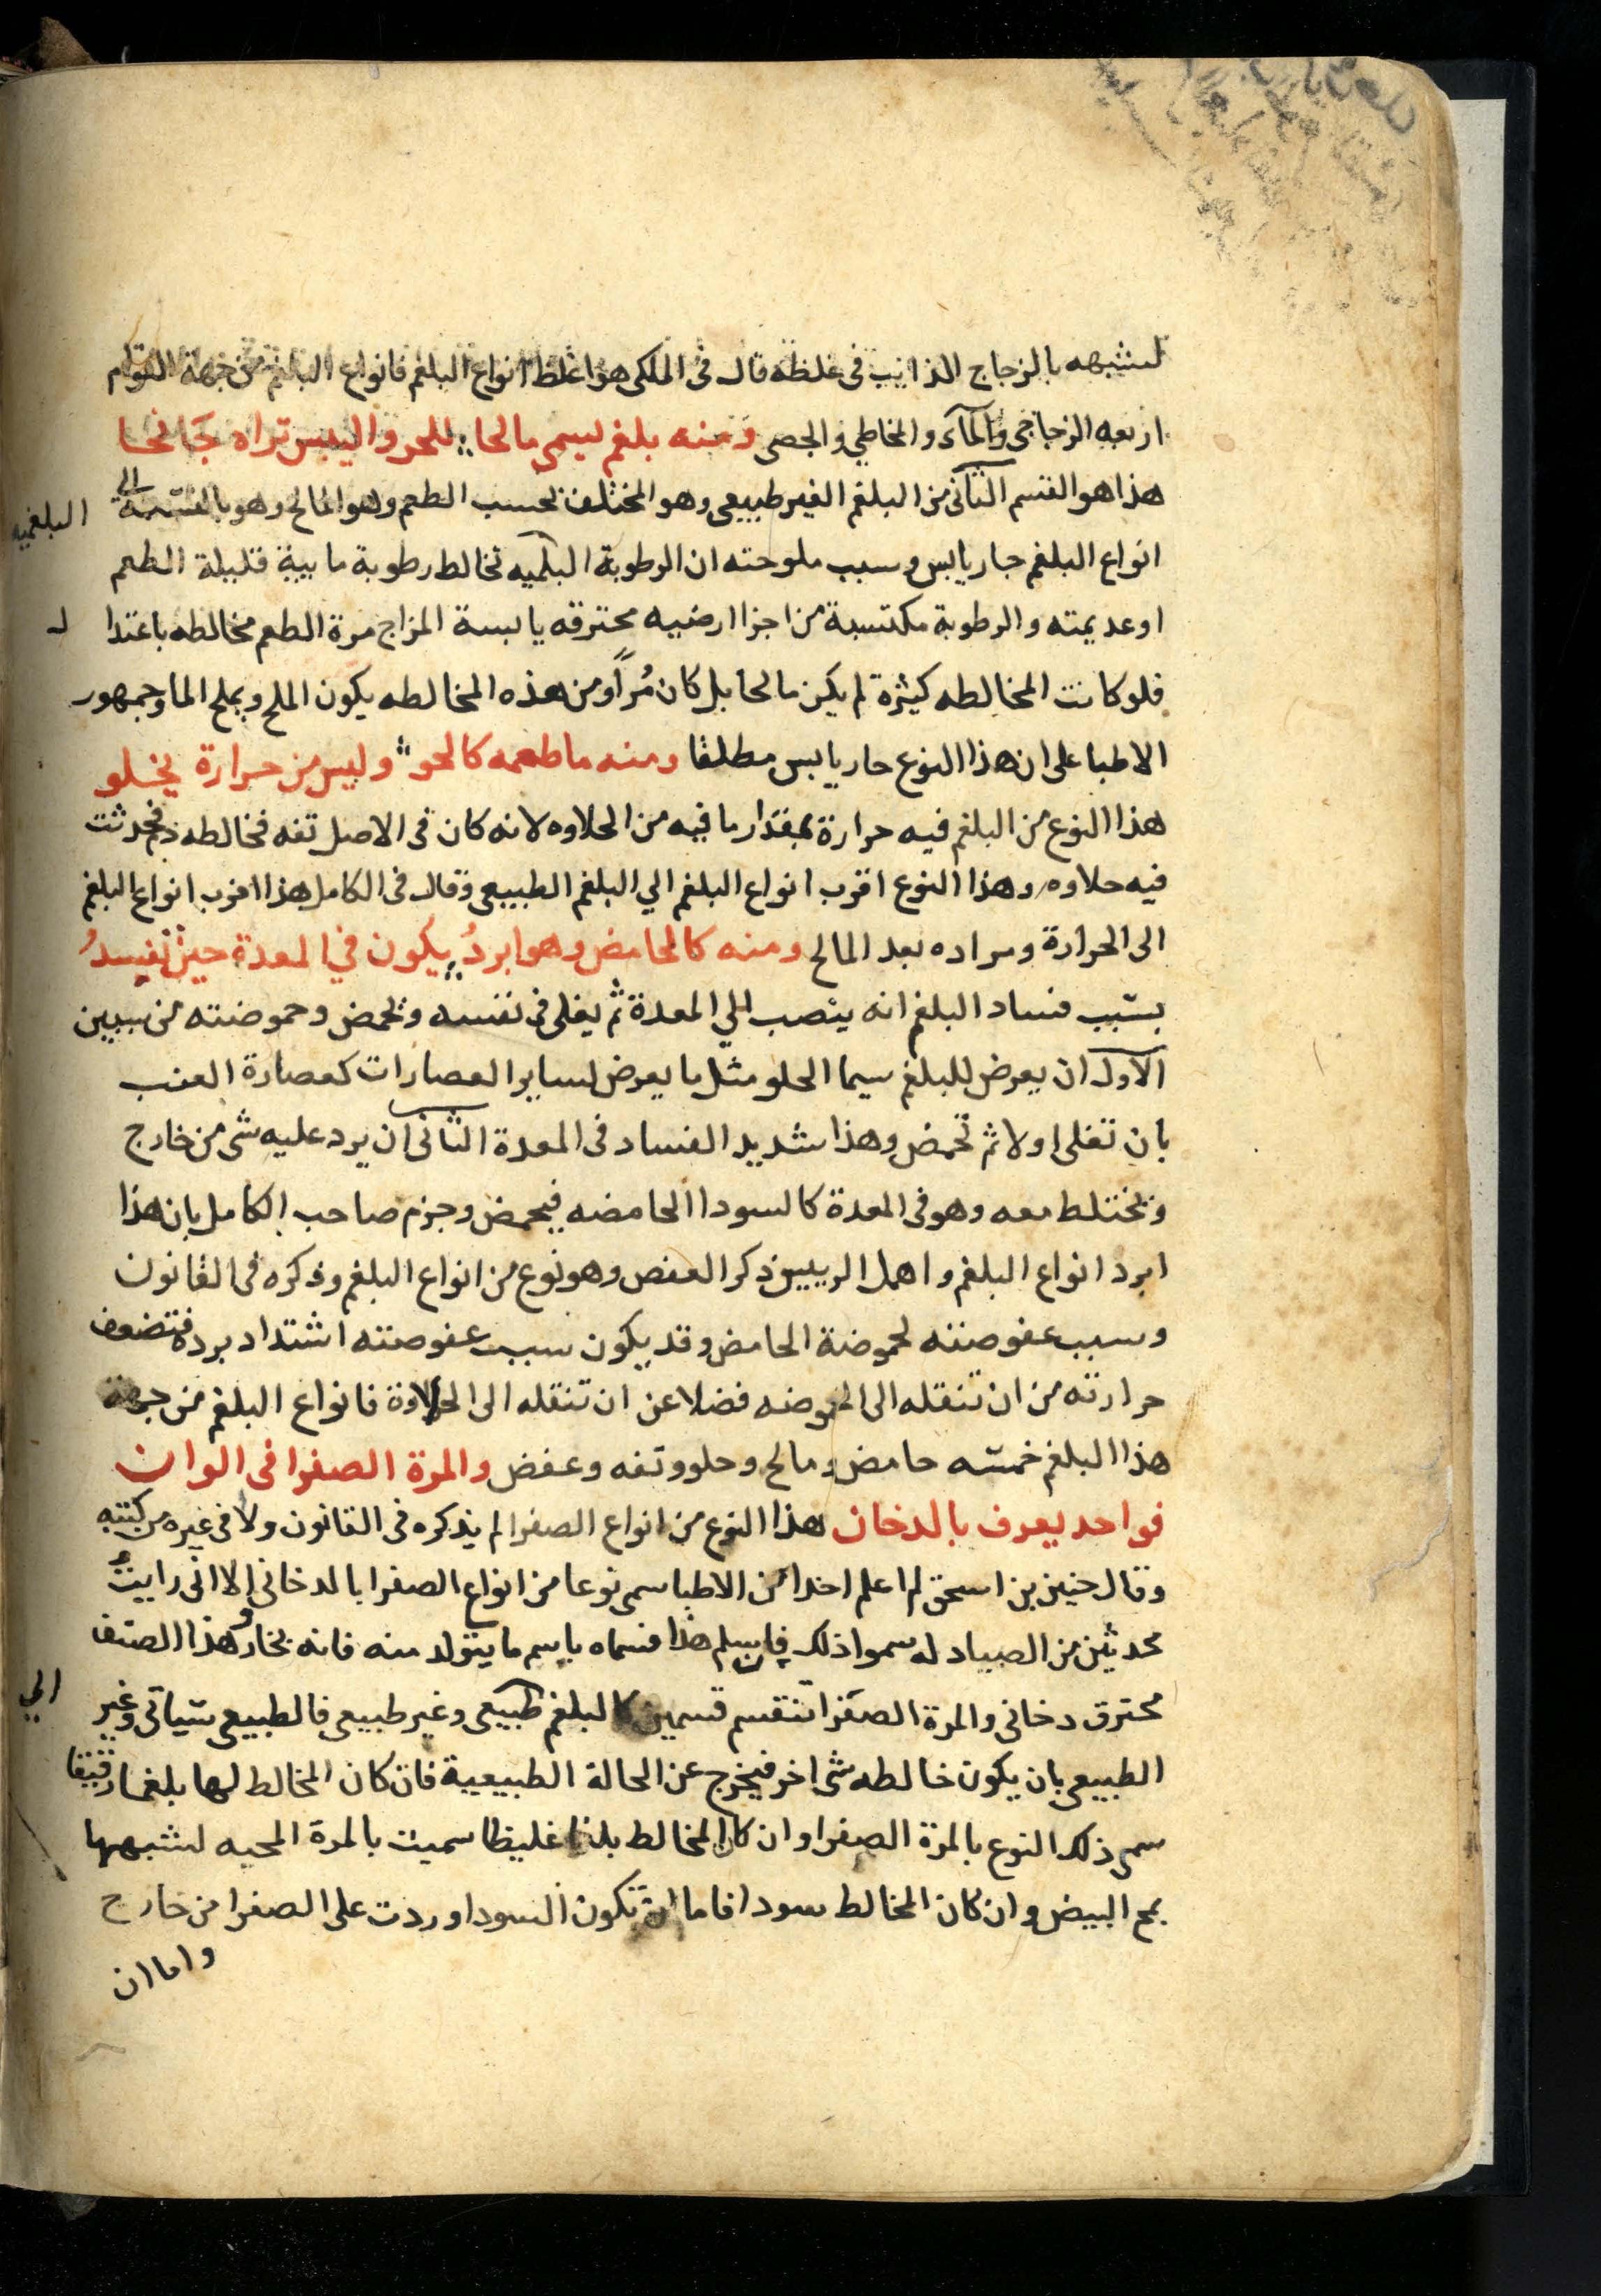 لشبهه بالزجاج الذايب فى غلظه قال فى الملكى هو اغلظ انواع البلغم فانواع البلغم من جهة القوام
اربعه الزجاجى والمآى والمخاطي والجصى ومنه بلغم ليسمى مالحا للحر واليبس تراه جانحا
هذا هو القسم الثانى من البلغم الغير طبيعى وهو المختلف بحسب الطعم وهو المالح وهو بالنسبة الى
انواع البلغم حار يابس وسبب ملوحته ان الرطوبة البلغميه تخالط رطوبة مايية قليلة الطعم
البلغميه
او عديمته والرطوبة مكتسبة من اجزا ارضيه محترقه يابسة المزاج مرة الطعم مخالطه باعتدا ل
فلو كانت المخالطه كثيرة لم يكن مالحا بل كان مُراً ومن هذه المخالطه يكون الملح ويملح الما وجمهور
الاطبا على ان هذا النوع حار يابس مطلقا ومنه ما طعمه كالحو وليس من حرارة يخلو
هذا النوع من البلغم فيه حرارة بمقدار ما فيه من الحلاوه لانه كان فى الاصل تفه فخالطه دم فحدثت
فيه حلاوه وهذا النوع اقرب انواع البلغم الي البلغم الطبيعى وقال فى الكامل هذا اقرب انواع البلغم
الى الحرارة ومراده بعد المالح ومنه كالحامض وهو ابردُ يكون في المعدة حين تفسدُ
بسبب فساد البلغم انه ينصب الي المعدة ثم يغلى فى نفسه ويحمض وحموضته من سببين
الاول ان يعرض للبلغم سيما الحلو مثل ما يعرض لساير العصارات كعصارة العنب
بان تغلى اولا ثم تحمض وهذا شديد الفساد فى المعدة الثانى ان يرد عليه شى من خارج
ويختلط معه وهو فى المعدة كالسودا الحامضه فيحمض وجزم صاحب الكامل بان هذا
ابرد انواع البلغم واهمل الرييس ذكر العفص وهو نوع من انواع البلغم وذكره فى القانون
وسبب عفوصته لحموضة الحامض وقد يكون سبب عفوصته اشتداد برده فتضعف
حرارته من ان تنقله الى الحموضه فضلا عن ان تنقله الى الحلاوة فانواع البلغم من جهة
هذا البلغم خمسه حامض ومالح وحلو وتفه وعفض والمرة الصفرا فى الوان
فواحد يعرف بالدخان هذا النوع من انواع الصفرا لم يذكره فى القانون ولا فى غيره من كتبه
وقال حنين بن اسحق لم اعلم احدا من الاطبا سمى نوعا من انواع الصفرا بالدخانى الا انى رايتُ
محدثين من الصيادله سموا ذلك هذا فسماه باسم ما يتولد منه فانه بخار وهذا الصنف
محترق دخانى والمرة الصفرا تنقسم قسمين كالبلغم طبيعى وغير طبيعى فالطبيعى سياتى وغير
الي
الطبيعى بان يكون خالطه شى اخر فيخرج عن الحالة الطبيعية فان كان المخالط لها بلغما رقيقا
سمى ذلك النوع بالمرة الصفرا وان كان المخالط بلغما غليظا سميت بالمرة المحيه لشبهها
بمح البيض وان كان المخالط سودا فاما ان تكون السودا وردت على الصفرا من خارج
واما ان